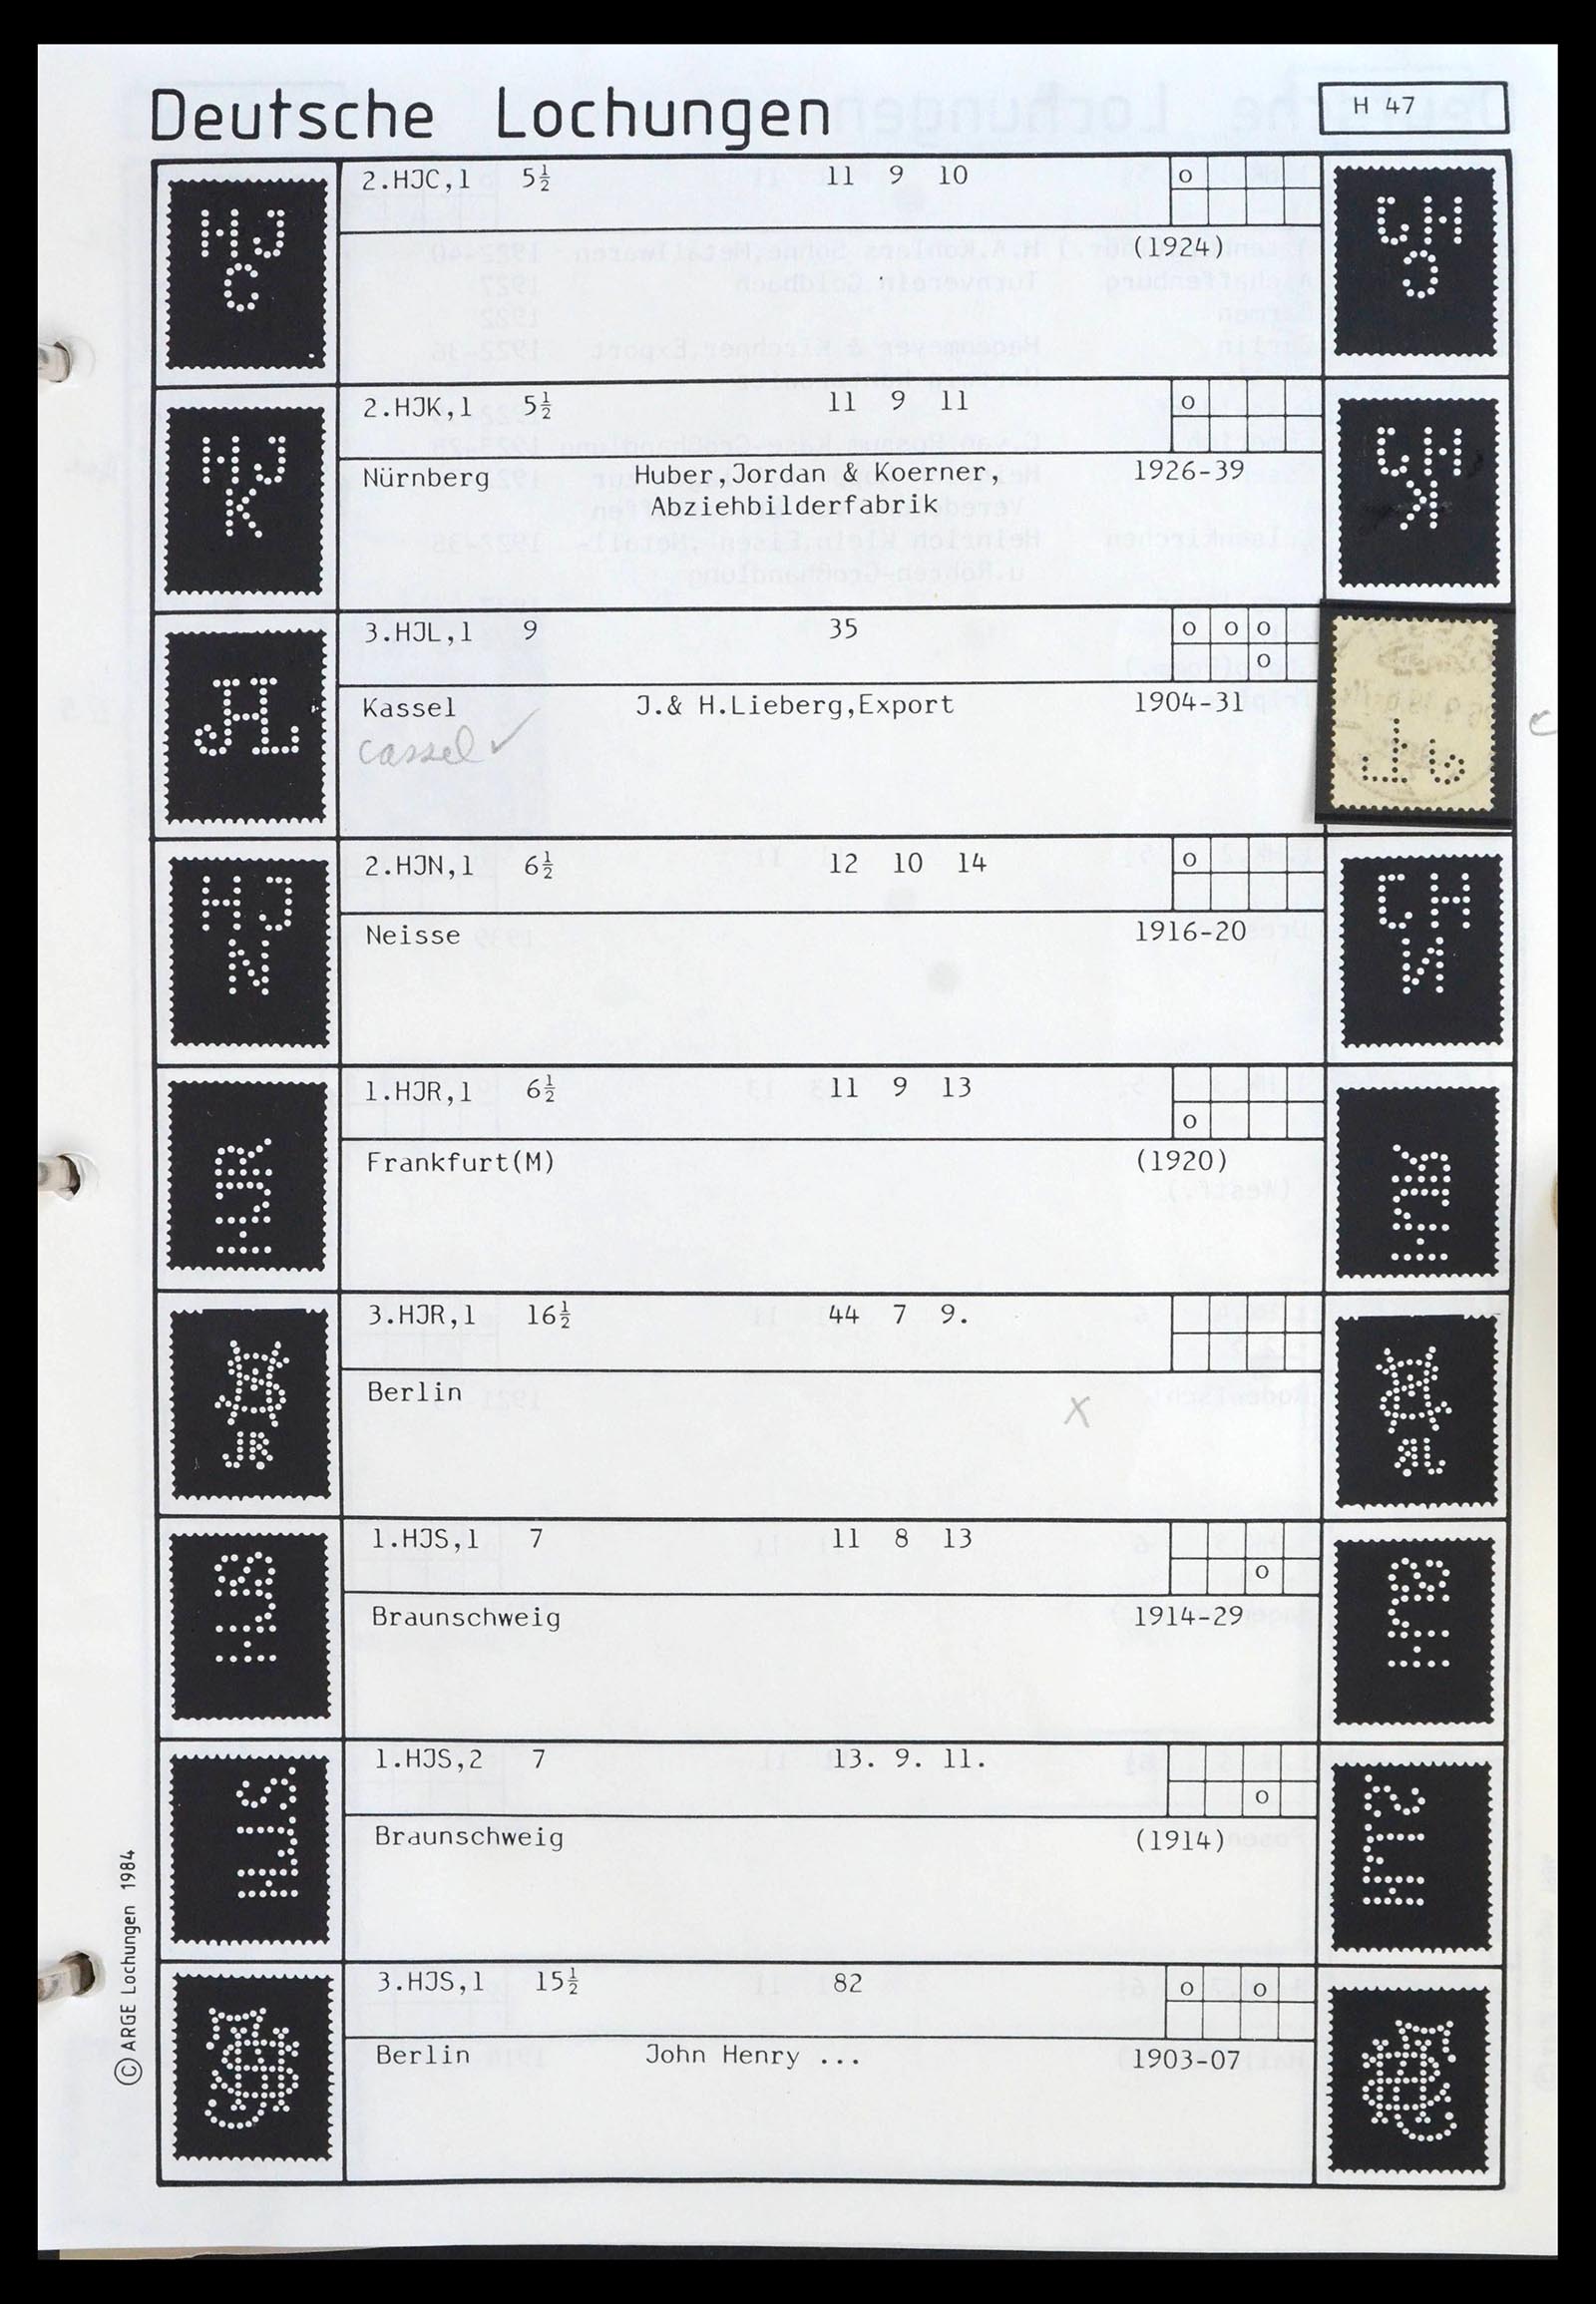 Deutsche Lochungen
H 47
HJ
C
2.HJC,1 5½ 11 9 10
o
(1924)
HJ
K
2.HJK,1 5½ 11 9 11
o
Nürnberg Huber,Jordan & Koerner, 1926-39
Abziehbilderfabrik
JHL
3.HJL,1 9 35
o o o
o
Kassel J.& H.Lieberg,Export 1904-31
Cassel ✓
HJ
N
2.HJN,1 6½ 12 10 14
o
Neisse 1916-20
HJR
1.HJR,1 6½ 11 9 13
o
Frankfurt(M) (1920)
JR
3.HJR,1 16½ 44 7 9.
Berlin
X
HJS
1.HJS,1 7 11 8 13
o
Braunschweig 1914-29
HJS
1.HJS,2 7 13. 9. 11.
o
Braunschweig (1914)
3.HJS,1 15½ 82
o o
Berlin John Henry ... 1903-07
© ARGE Lochungen 1984